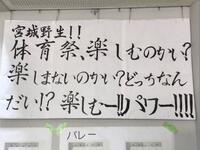 宮城野生!!
体育祭、楽しむのかい?
楽しまないのかい?どっちなん
だい!?楽しむーー!!パワー!!!!
バレー